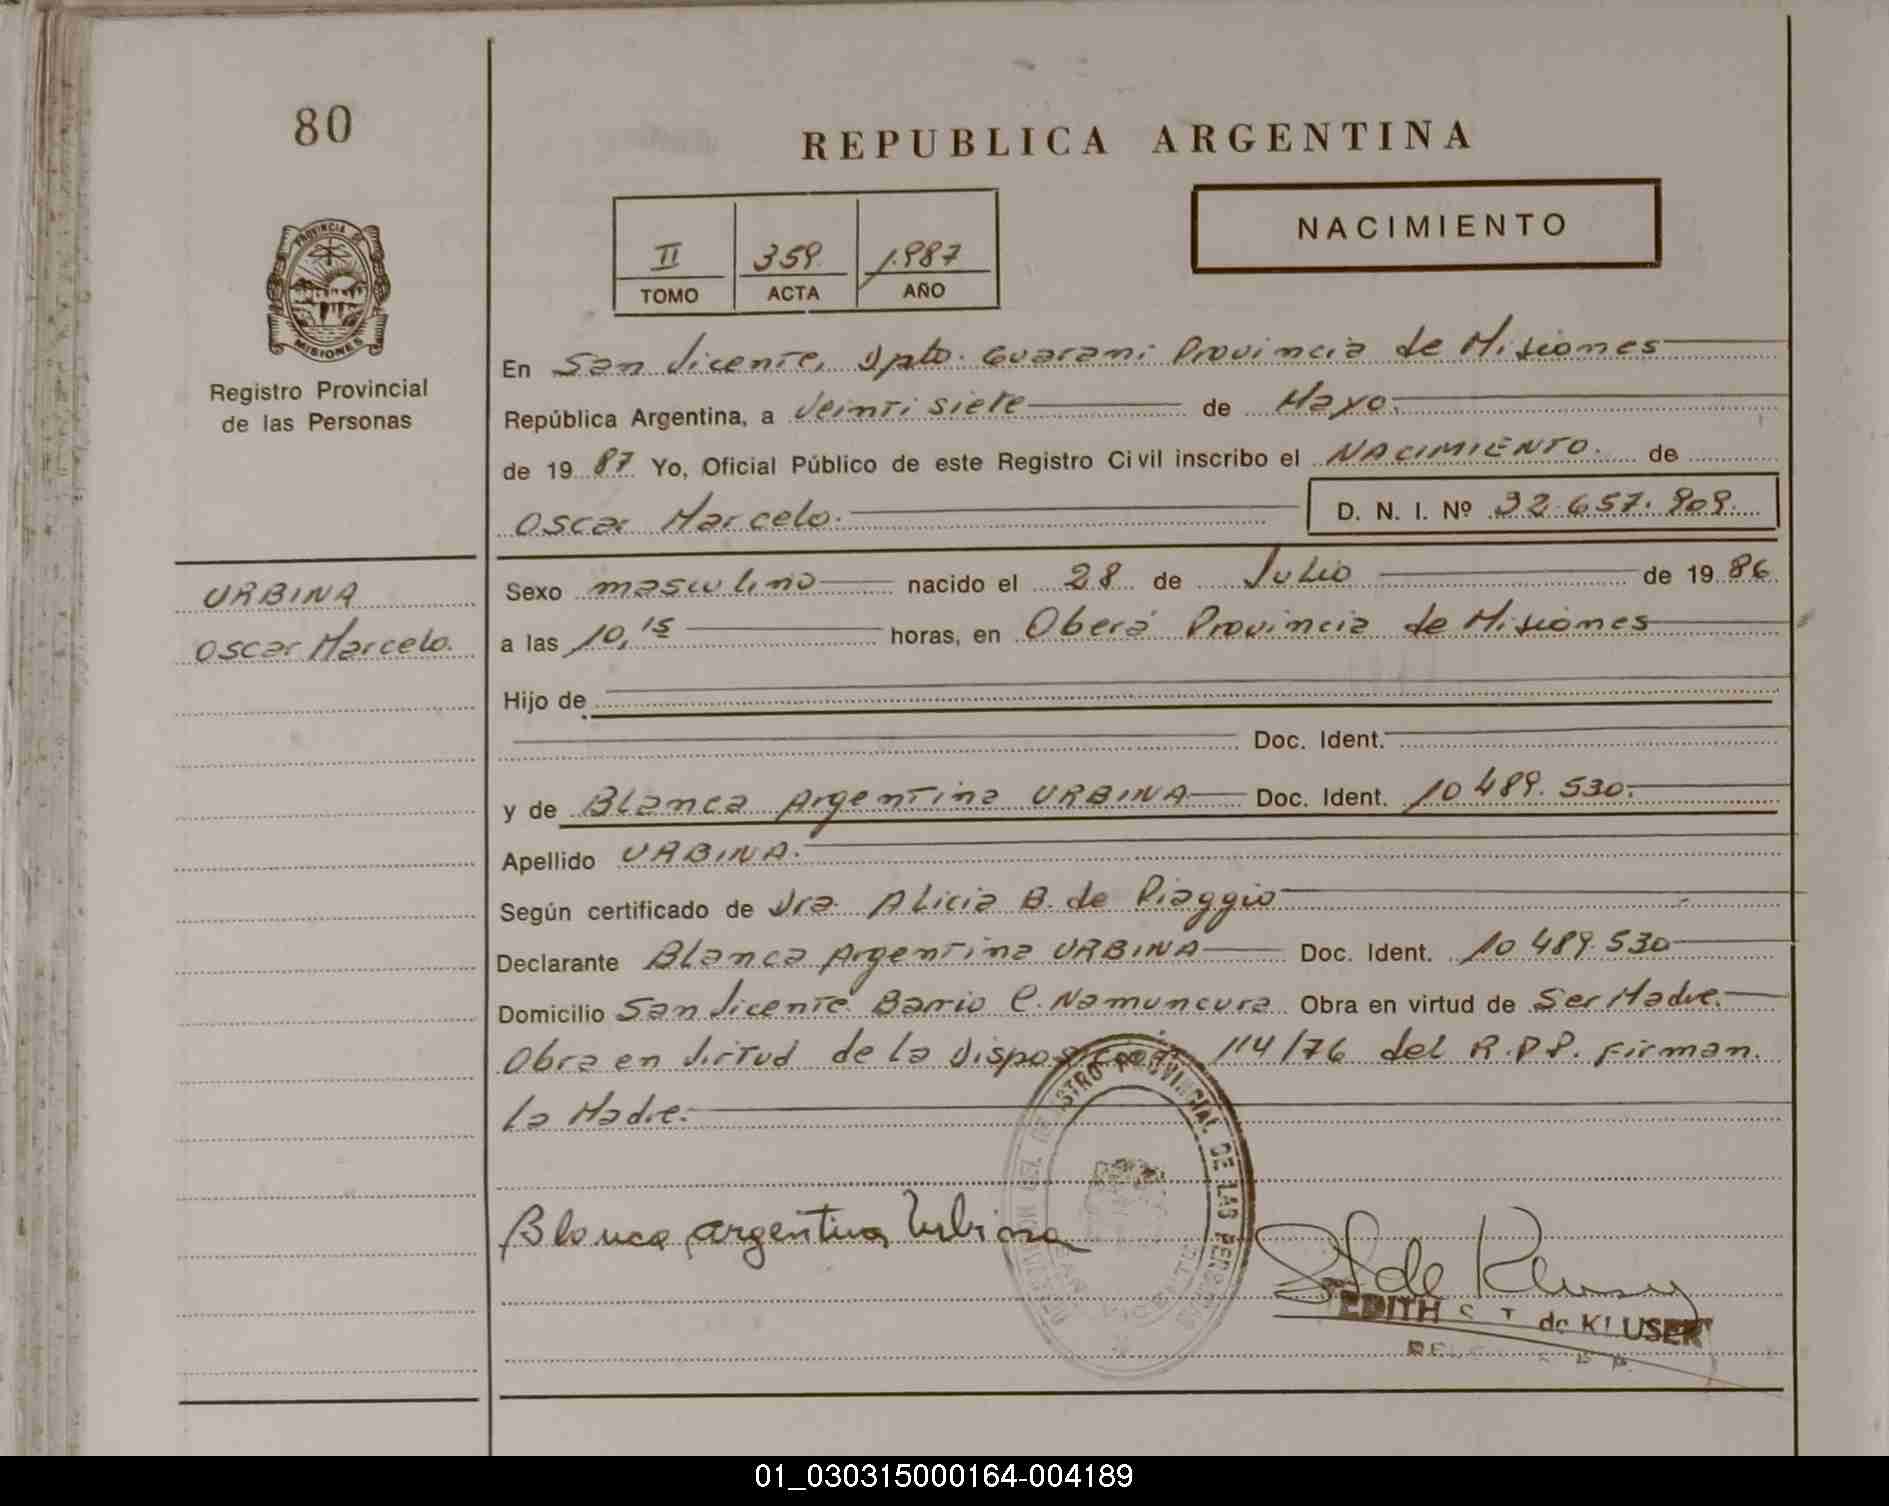 80
REPUBLICA ARGENTINA
II 359 1.987
TOMO ACTA AÑO
NACIMIENTO
PROVINCIA DE
MISIONES
Registro Provincial
de las Personas
En San Vicente, Dpto. Guarani Provincia de Misiones
República Argentina, a Veinti siete de Mayo.
de 19 87 Yo, Oficial Público de este Registro Civil inscribo el NACIMIENTO. de
Oscar Marcelo. D. N. I. Nº 32.657.909.
URBINA
Oscar Marcelo.
Sexo masculino nacido el 28 de Julio de 19 86
a las 10,15 horas, en Oberá Provincia de Misiones
Hijo de
Doc. Ident.
y de Blanca Argentina URBINA Doc. Ident. 10.489.530.
Apellido URBINA.
Según certificado de Dra. Alicia B. de Piaggio
Declarante Blanca Argentina URBINA Doc. Ident. 10.489.530
Domicilio San Vicente Barrio C. Namuncura Obra en virtud de Ser Madre.
Obra en Virtud de la Disposición 114/76 del R.P.P. Firman.
La Madre.
REGISTRO PROVINCIAL DE LAS PERSONAS
SAN VICENTE
Blanca argentina Urbina
de Kluser
EDITH de KLUSER
01_030315000164-004189